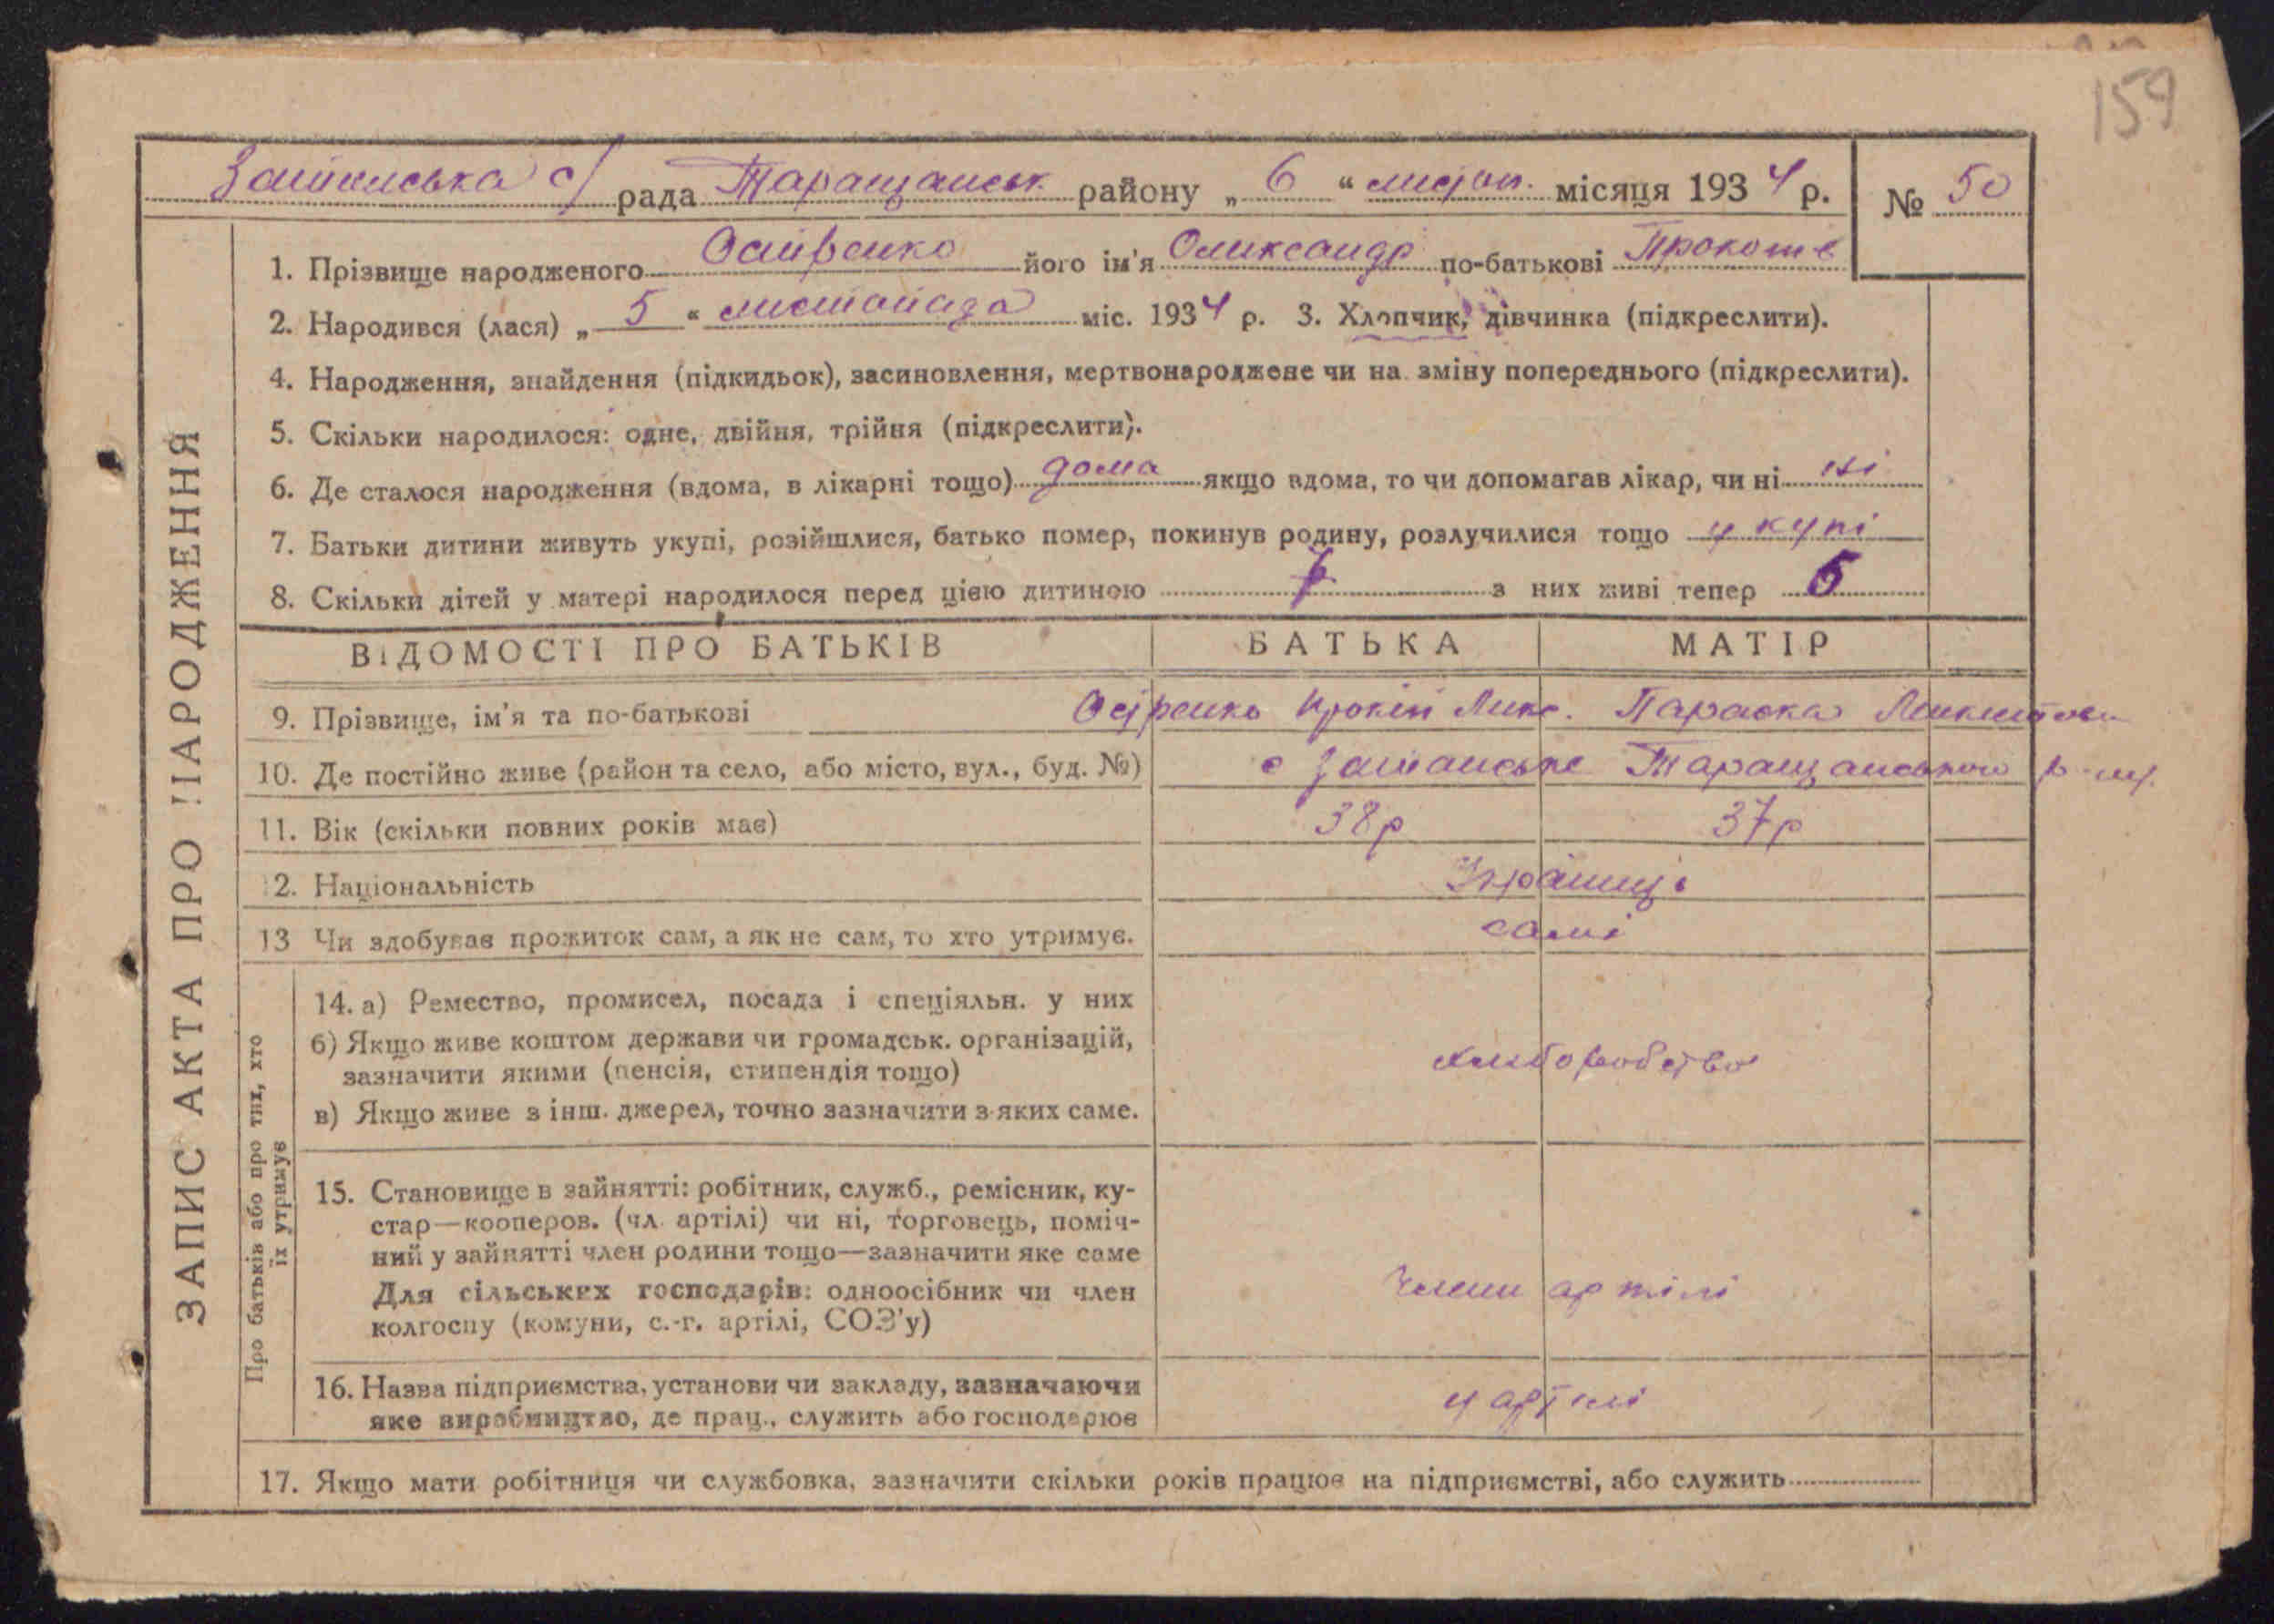 159
с/ рада Таращанськ району „ 6 “ листоп. місяця 1934 р. № 50
1. Прізвище народженого його ім'я Олександр по-батькові
2. Народився (лася) „ 5 “ листопада міс. 1934 р. 3. Хлопчик, дівчинка (підкреслити).
4. Народження, знайдення (підкидьок), засиновлення, мертвонароджене чи на зміну попереднього (підкреслити).
5. Скільки народилося: одне, двійня, трійня (підкреслити).
6. Де сталося народження (вдома, в лікарні тощо) дома якщо вдома, то чи допомагав лікар, чи ні ні
7. Батьки дитини живуть укупі, розійшлися, батько помер, покинув родину, розлучилися тощо у купі
8. Скільки дітей у матері народилося перед цією дитиною з них живі тепер 5
ВІДОМОСТІ ПРО БАТЬКІВ БАТЬКА МАТІР
9. Прізвище, ім'я та по-батькові Параска
10. Де постійно живе (район та село, або місто, вул., буд. №) с Таращанського р-ну.
11. Вік (скільки повних років має) 38р 37р
12. Національність Українці
13 Чи здобуває прожиток сам, а як не сам, то хто утримує. самі
14. а) Ремество, промисел, посада і спеціяльн. у них
б) Якщо живе коштом держави чи громадськ. організацій,
зазначити якими (пенсія, стипендія тощо)
хліборобство
в) Якщо живе з інш. джерел, точно зазначити з яких саме.
15. Становище в зайнятті: робітник, служб., ремісник, ку-
стар—кооперов. (чл. артілі) чи ні, торговець, поміч-
ний у зайнятті член родини тощо—зазначити яке саме
Для сільських господарів: одноосібник чи член
колгоспу (комуни, с.-г. артілі, СОЗ'у)
Члени артілі
16. Назва підприємства, установи чи закладу, зазначаючи
яке виробництво, де прац., служить або господарює
у артілі
17. Якщо мати робітниця чи службовка, зазначити скільки років працює на підприємстві, або служить
ЗАПИС АКТА ПРО НАРОДЖЕННЯ
Про батьків або про тих, хто
їх утримує